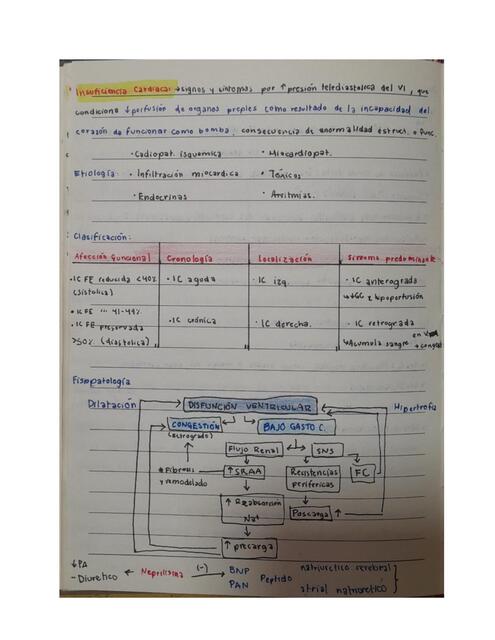 Insuficiencia Cardiaca: → signos y síntomas, por ↑ presión telediastolica del VI, que
condiciona ↓ perfusión de organos preples como resultado de la incapacidad del
corazón de funcionar como bomba, consecuencia de anormalidad estruct. o func.
• Cadiopat. isquemica • Miocardiopat.
Etiología: • Infiltración miocardica • Toxicos
• Endocrinas • Arritmias.
Clasificación:
Afección funcional Cronología Localización Sindrome predominante
• IC FE reducida <40% • IC aguda • IC izq. • IC anterograda
(sistolica) ↳ ↓GC e hipoperfusión
• IC FE 41-49%
• IC FE preservada • IC crónica • IC derecha. • IC retrograda
>50% (diastolica) ↳ Acumula sangre en → congest
Fisiopatología
Dilatación DISFUNCIÓN VENTRICULAR Hipertrofia
CONGESTIÓN BAJO GASTO C.
(retrogrado)
Flujo Renal SNS
* Fibrosis ↑ SRAA Resistencias FC
y remodelado perifericas
↑ Reabsorción Poscarga ↑
Na+
↑ precarga
↓PA
- Diuretico ← Neprilisina (-) → BNP Peptido natriuretico cerebral
PAN atrial natriuretico